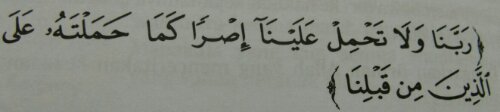 ﴿رَبَّنَا وَلَا تَحْمِلْ عَلَيْنَآ إِصْرًا كَمَا حَمَلْتَهُۥ عَلَى
ٱلَّذِينَ مِن قَبْلِنَا﴾